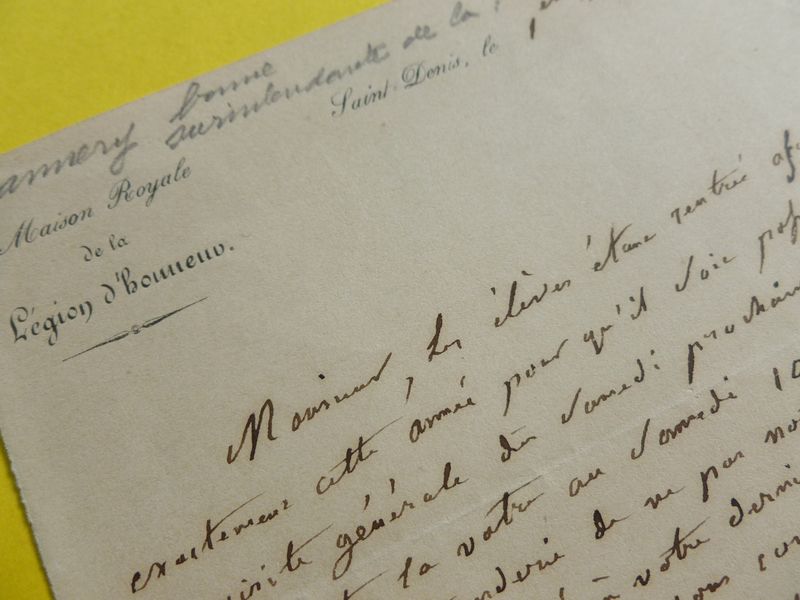 bonne
surintendante de la
Saint-Denis, le
Maison Royale
de la
Légion d'honneur.
Monsieur, les élèves étant rentré
exactement cette année pour qu'il soit
visite générale du samedi prochain
la votre au samedi 10
de ne pas
à votre